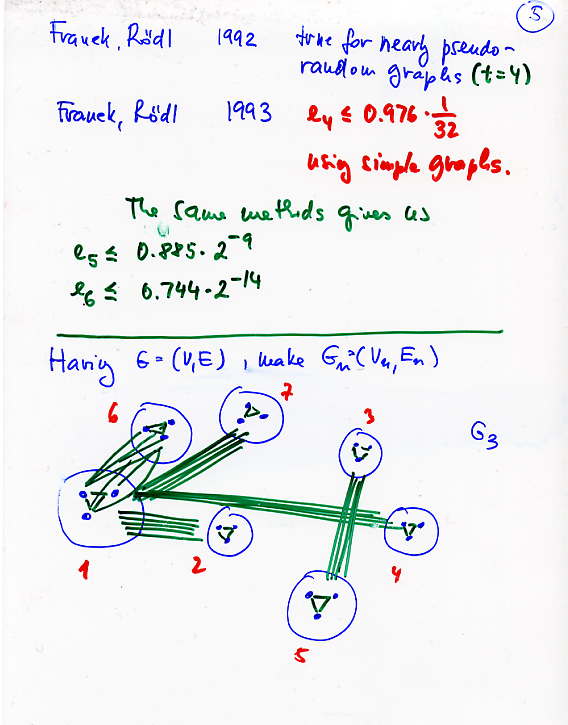 5
Franek, Rödl 1992 true for nearly pseudo-
random graphs (t=4)
Franek, Rödl 1993 e₄ ≤ 0.976 · 1/32
using simple graphs.
The same methods gives us
e₅ ≤ 0.885 · 2⁻⁹
e₆ ≤ 0.744 · 2⁻¹⁴
Having G = (V,E), make Gₙ=(Vₙ,Eₙ)
6 7 3
G₃
1 2 4
5